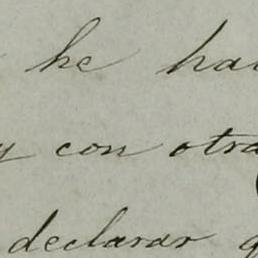 he ha
y con otra
declarar q